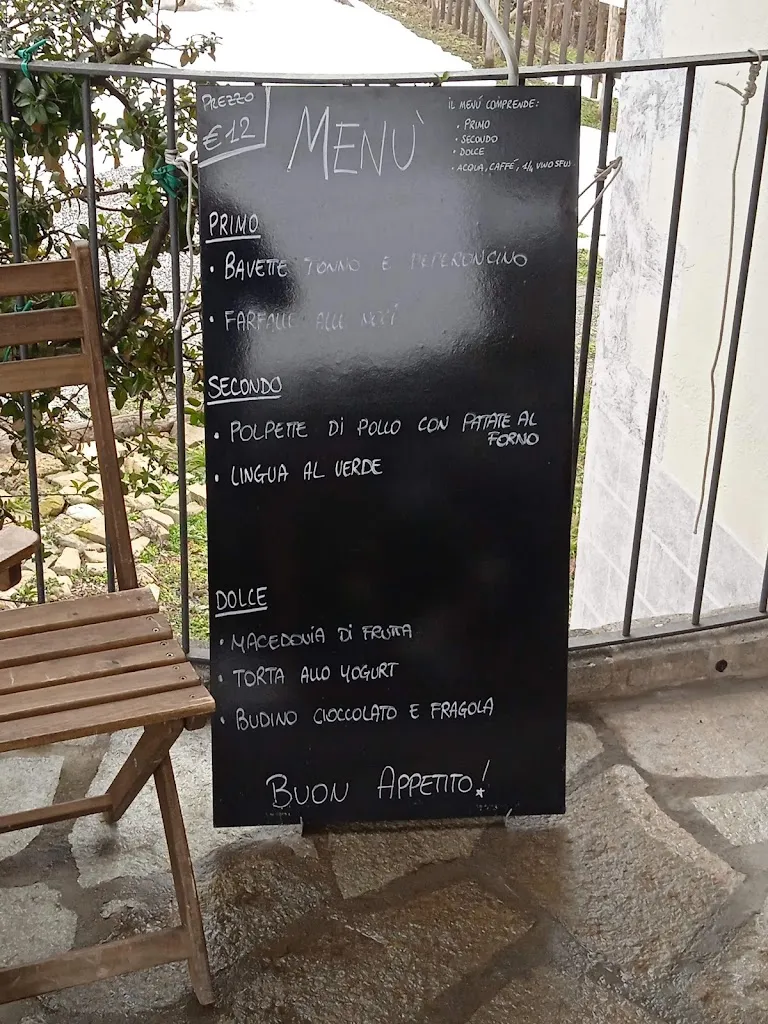 PREZZO
€12
MENÙ
IL MENÚ COMPRENDE:
• PRIMO
• SECONDO
• DOLCE
• ACQUA, CAFFÉ, 1/4 VINO SFUSO
PRIMO
• BAVETTE TONNO E PEPERONCINO
• FARFALLE ALLE NOCI
SECONDO
• POLPETTE DI POLLO CON PATATE AL
FORNO
• LINGUA AL VERDE
DOLCE
• MACEDONIA DI FRUTTA
• TORTA ALLO YOGURT
• BUDINO CIOCCOLATO E FRAGOLA
BUON APPETITO!